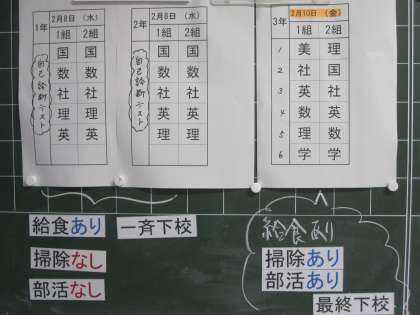 1年 2月8日(水)
1組 2組
自己診断テスト
国 国
数 数
社 社
理 理
英 英
2年 2月8日(水)
1組 2組
自己診断テスト
国 国
数 数
社 社
英 英
理 理
3年 2月10日(金)
1組 2組
1 美 理
2 社 国
3 英 社
4 数 英
5 理 数
6 学 学
給食あり 一斉下校
掃除なし
部活なし
給食あり
掃除あり
部活あり
最終下校